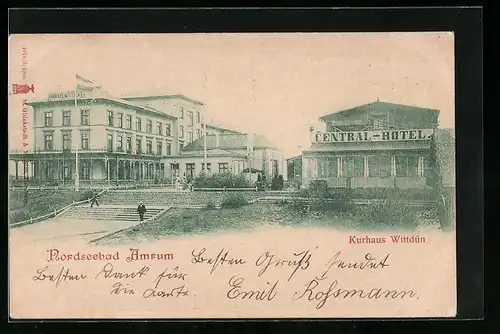 CENTRAL-HOTEL
Kurhaus Wittdün
Nordseebad Amrum
Besten Gruß sendet
Besten Dank für
die Karte.
Emil Rossmann.